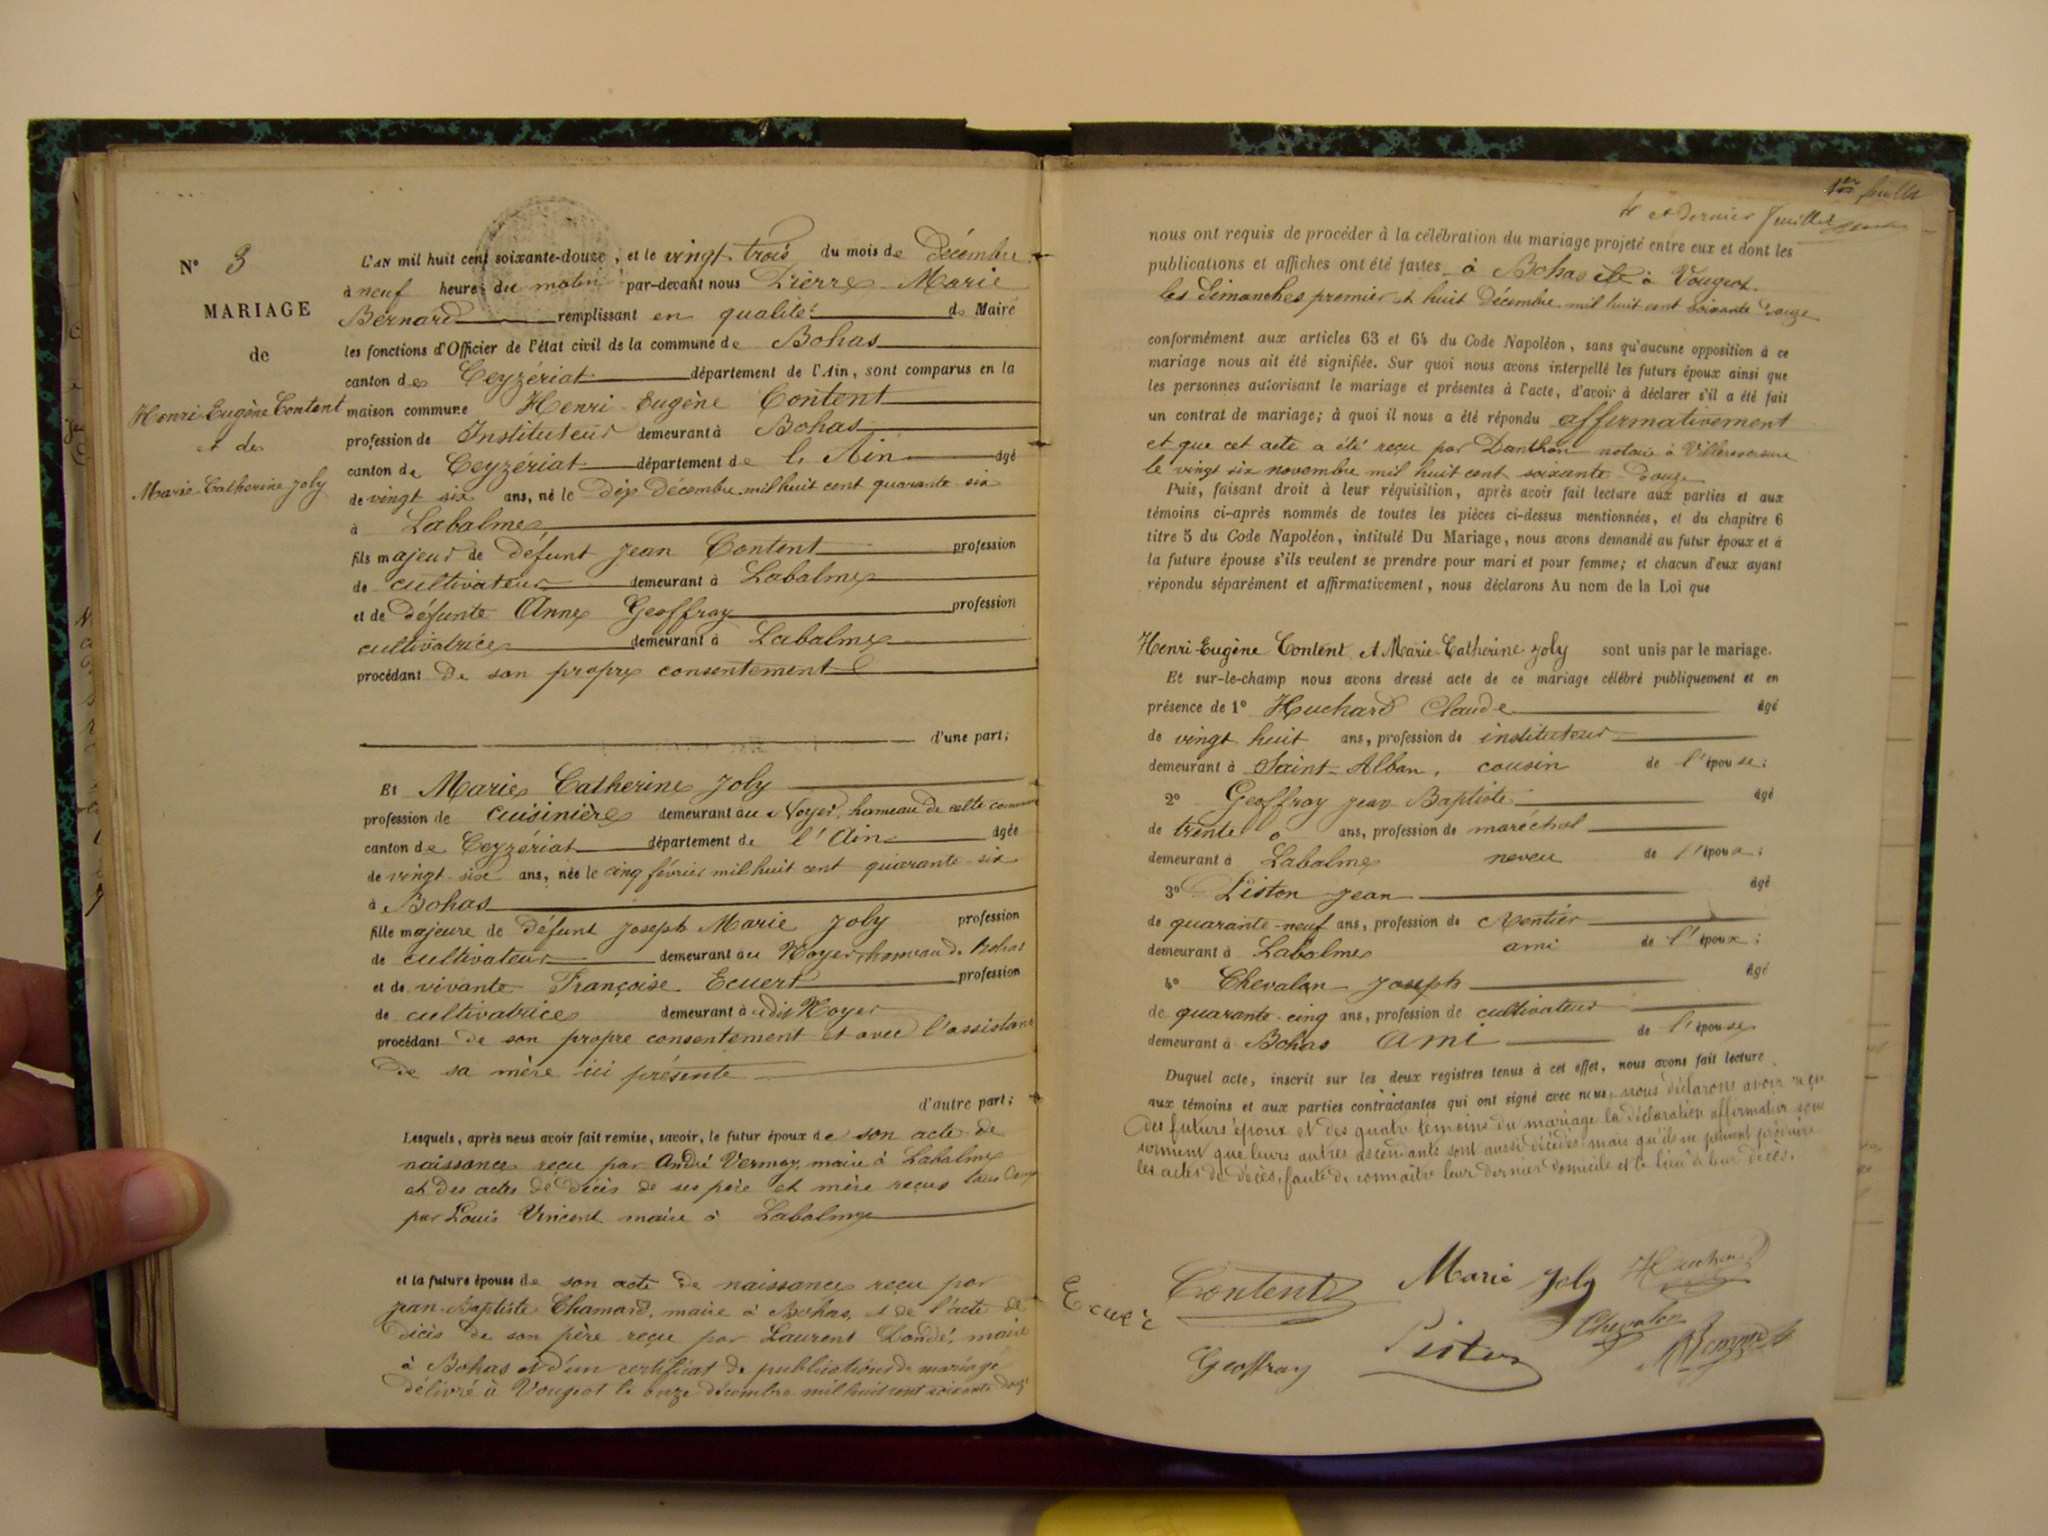 N° 3
MARIAGE
de
Henri-Eugène Content
et de
Marie-Catherine Joly
L'AN mil huit cent soixante-douze, et le vingt trois du mois de Décembre
à neuf heures du matin par-devant nous Pierre Marie
Bernard remplissant en qualité de Maire
les fonctions d'Officier de l'état civil de la commune de Bohas
canton de Ceyzériat département de l'Ain, sont comparus en la
maison commune Henri-Eugène Content
profession de Instituteur demeurant à Bohas
canton de Ceyzériat département de l'Ain âgé
de vingt six ans, né le dix Décembre mil huit cent quarante six
à Labalme
fils majeur de défunt Jean Content profession
de cultivateur demeurant à Labalme
et de défunte Anne Geoffray profession
cultivatrice demeurant à Labalme
procédant de son propre consentement
d'une part;
Et Marie Catherine Joly
profession de cuisinière demeurant au Noyer, hameau de cette commune
canton de Ceyzériat département de l'Ain âgée
de vingt-six ans, née le cinq février mil huit cent quarante-six
à Bohas
fille majeure de défunt Joseph Marie Joly profession
de cultivateur demeurant au Noyer, hameau de Bohas
et de vivante Françoise Ecuert profession
de cultivatrice demeurant à dit Noyer
procédant de son propre consentement et avec l'assistance
de sa mère ici présente
d'autre part;
Lesquels, après nous avoir fait remise, savoir, le futur époux de son acte de
naissance reçu par André Vermay, maire à Labalme
et des actes de décès de ses père et mère reçus tous
par Louis Vincent maire à Labalme
et la future épouse de son acte de naissance reçu par
Jean-Baptiste Chamard, maire à Bohas, et de l'acte de
décès de son père reçu par Laurent Dondé, maire
à Bohas et d'un certificat de publications de mariage
délivré à Vougeot le onze décembre mil huit cent soixante douze
1er feuillet
4e et dernier feuillet
nous ont requis de procéder à la célébration du mariage projeté entre eux et dont les
publications et affiches ont été faites à Bohas et à Vougeot
les dimanches premier et huit Décembre mil huit cent soixante-douze
conformément aux articles 63 et 64 du Code Napoléon, sans qu'aucune opposition à ce
mariage nous ait été signifiée. Sur quoi nous avons interpellé les futurs époux ainsi que
les personnes autorisant le mariage et présentes à l'acte, d'avoir à déclarer s'il a été fait
un contrat de mariage; à quoi il nous a été répondu affirmativement
et que cet acte a été reçu par Danthon notaire à Villereversure
le vingt six novembre mil huit cent soixante-douze
Puis, faisant droit à leur réquisition, après avoir fait lecture aux parties et aux
témoins ci-après nommés de toutes les pièces ci-dessus mentionnées, et du chapitre 6
titre 5 du Code Napoléon, intitulé Du Mariage, nous avons demandé au futur époux et à
la future épouse s'ils veulent se prendre pour mari et pour femme; et chacun d'eux ayant
répondu séparément et affirmativement, nous déclarons Au nom de la Loi que
Henri-Eugène Content et Marie-Catherine Joly sont unis par le mariage.
Et sur-le-champ nous avons dressé acte de ce mariage célébré publiquement et en
présence de 1° Huchard Claude âgé
de vingt huit ans, profession de instituteur
demeurant à Saint-Alban, cousin de l'épouse;
2° Geoffray Jean Baptiste âgé
de trente ans, profession de maréchal
demeurant à Labalme neveu de l'époux;
3° Piston Jean âgé
de quarante-neuf ans, profession de Rentier
demeurant à Labalme ami de l'époux;
4° Chevalon Joseph âgé
de quarante-cinq ans, profession de cultivateur
demeurant à Bohas ami de l'épouse
Duquel acte, inscrit sur les deux registres tenus à cet effet, nous avons fait lecture
aux témoins et aux parties contractantes qui ont signé avec nous, nous déclarons avoir reçu
des futurs époux et des quatre témoins du mariage la déclaration affirmative sous
serment que leurs autres ascendants sont aussi décédés mais qu'ils ne peuvent produire
les actes de décès, faute de connaître leur dernier domicile et le lieu de leur décès.
Ecuer Content Marie Joly Huchard
Chevalon
Geoffray Piston Bernard